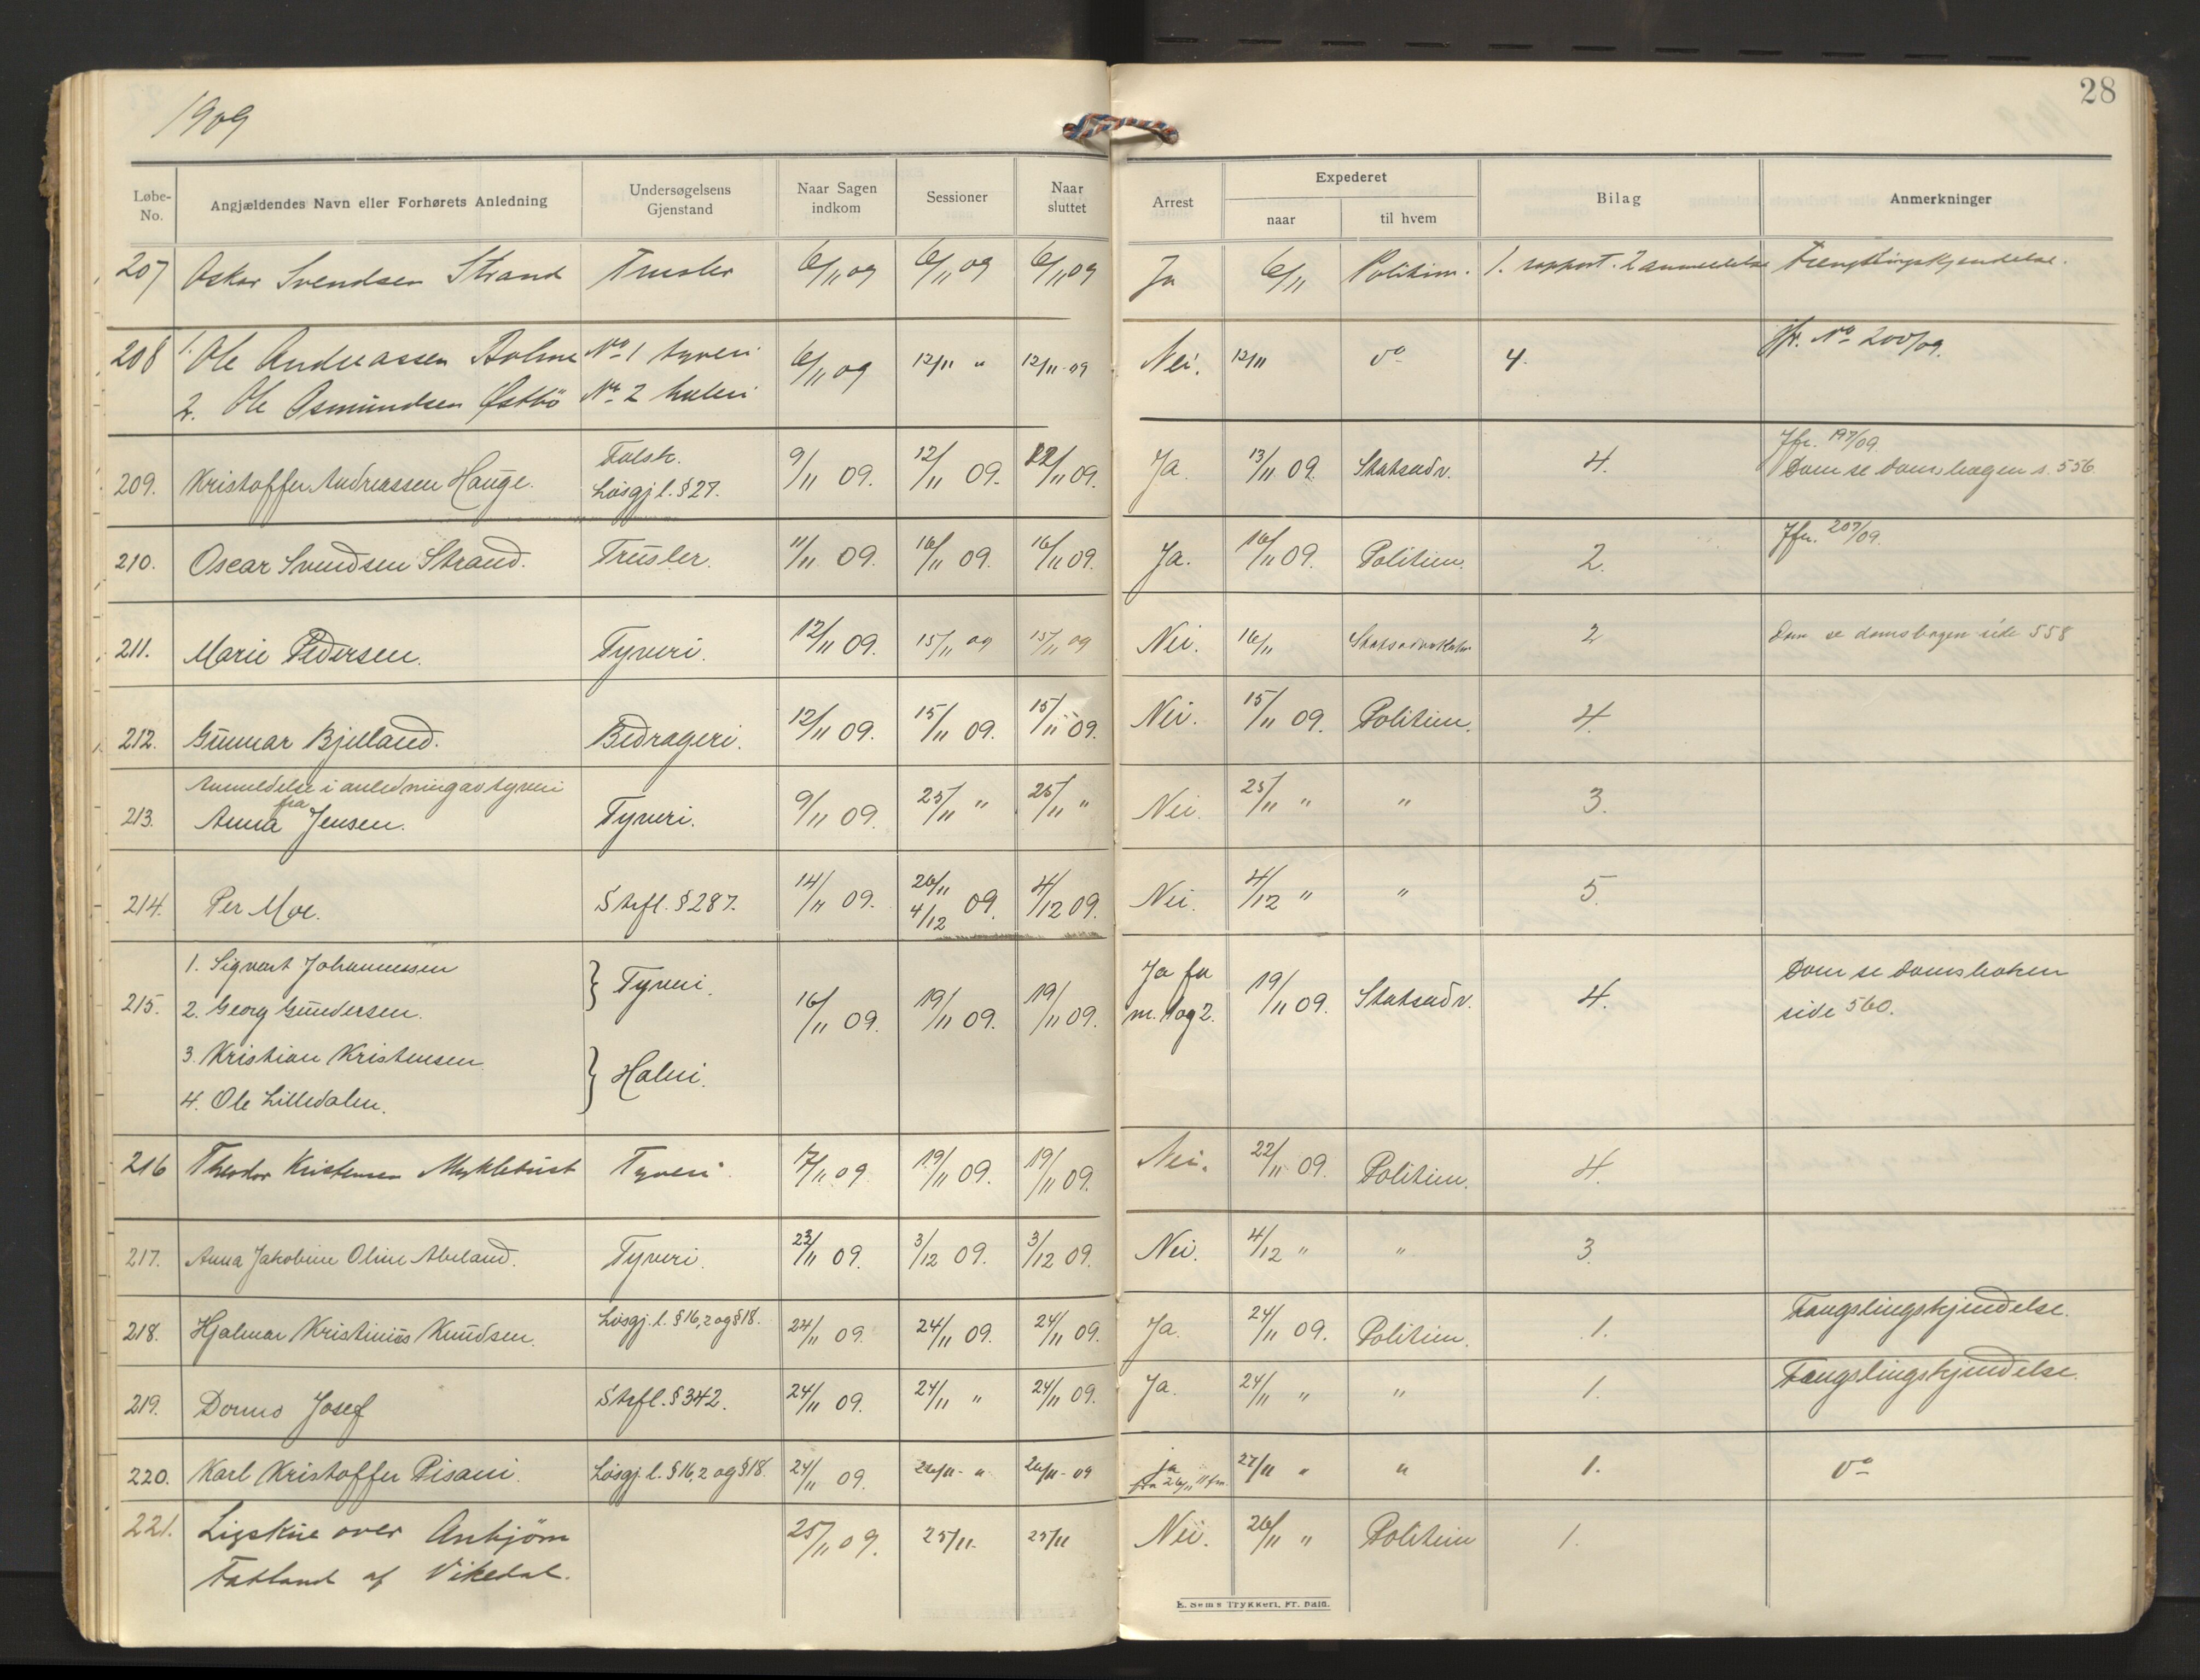 1909
28
Løbe-No. Angjældendes Navn eller Forhørets Anledning Undersøgelsens Gjenstand Naar Sagen indkom Sessioner Naar sluttet Arrest Expederet naar til hvem Bilag Anmerkninger
207 Oskar Svendsen Strand Trusler 6/11 09 6/11 09 6/11 09 Ja 6/11 Politim. 1. rapport. 2 anmeldelse Fængslingskjendelse.
208 1. Ole Andreassen No 1 tyveri 6/11 09 12/11 " 12/11-09 Nei. 12/11 do 4. Jfr. No 200/09.
2. Ole Osmundsen Østbö No 2 heleri
209. Kristoffer Andreassen Hauge. Falsk. Løsgj.l. §27. 9/11 09. 12/11 09. 12/11 09. Ja. 13/11 09. Statsadv. 4. Jfr. 197/09.
Dom se domsbogen s. 556
210. Oscar Svendsen Strand. Trusler. 11/11 09. 16/11 09. 16/11 09. Ja. 16/11 09. Politim. 2. Jfr. 207/09.
211. Marie Pedersen. Tyveri. 12/11 09. 15/11 09 15/11 09 Nei. 16/11 Statsadvokaten 2 Dom se domsbogen side 558
212. Gunnar Bjelland. Bedrageri. 12/11 09. 15/11 09. 15/11 09. Nei. 15/11 09. Politim. 4.
Anmeldelse i anledning av tyveri
213. fra Anna Jensen. Tyveri. 9/11 09. 25/11 " 25/11 " Nei. 25/11 " " 3.
214. Per Moe. Strfl. §287. 14/11 09. 26/11 4/12 09. 4/12 09. Nei. 4/12 " " 5.
1. Sigvart Johannessen } Tyveri. Ja for Dom se domsboken
215. 2. Georg Gundersen. 16/11 09. 19/11 09. 19/11 09. nr. 1 og 2. 19/11 09. Statsadv. 4. side 560.
3. Kristian Kristensen } Heleri.
4. Ole Lilledalen.
216 Theodor Kristensen Myklebust Tyveri. 17/11 09 19/11 09. 19/11 09. Nei. 22/11 09. Politim. 4.
217. Anna Jakobine Oline Abeland. Tyveri. 23/11 09. 3/12 09. 3/12 09. Nei. 4/12 " " 3.
218. Hjalmar Kristinius Knudsen. Løsgj.l. §16,2 og §18. 24/11 09. 24/11 09. 24/11 09. Ja. 24/11 09. Politim. 1. Fængslingskjendelse.
219. Josef Strfl. §342. 24/11 09. 24/11 " 24/11 09. Ja. 24/11 " " 1. Fængslingskjendelse.
220. Karl Kristoffer Pisani. Løsgj.l. §16,2 og §18. 24/11 09. 26/11- " 26/11-09 ja fra 26/11 11 fm. 27/11 " " 1. do
221. Ligskue over 25/11 09. 25/11- 25/11 Nei. 26/11 " Politim 1.
Fatland af Vikedal.
E. Sem's Trykkeri, Fr.hald.